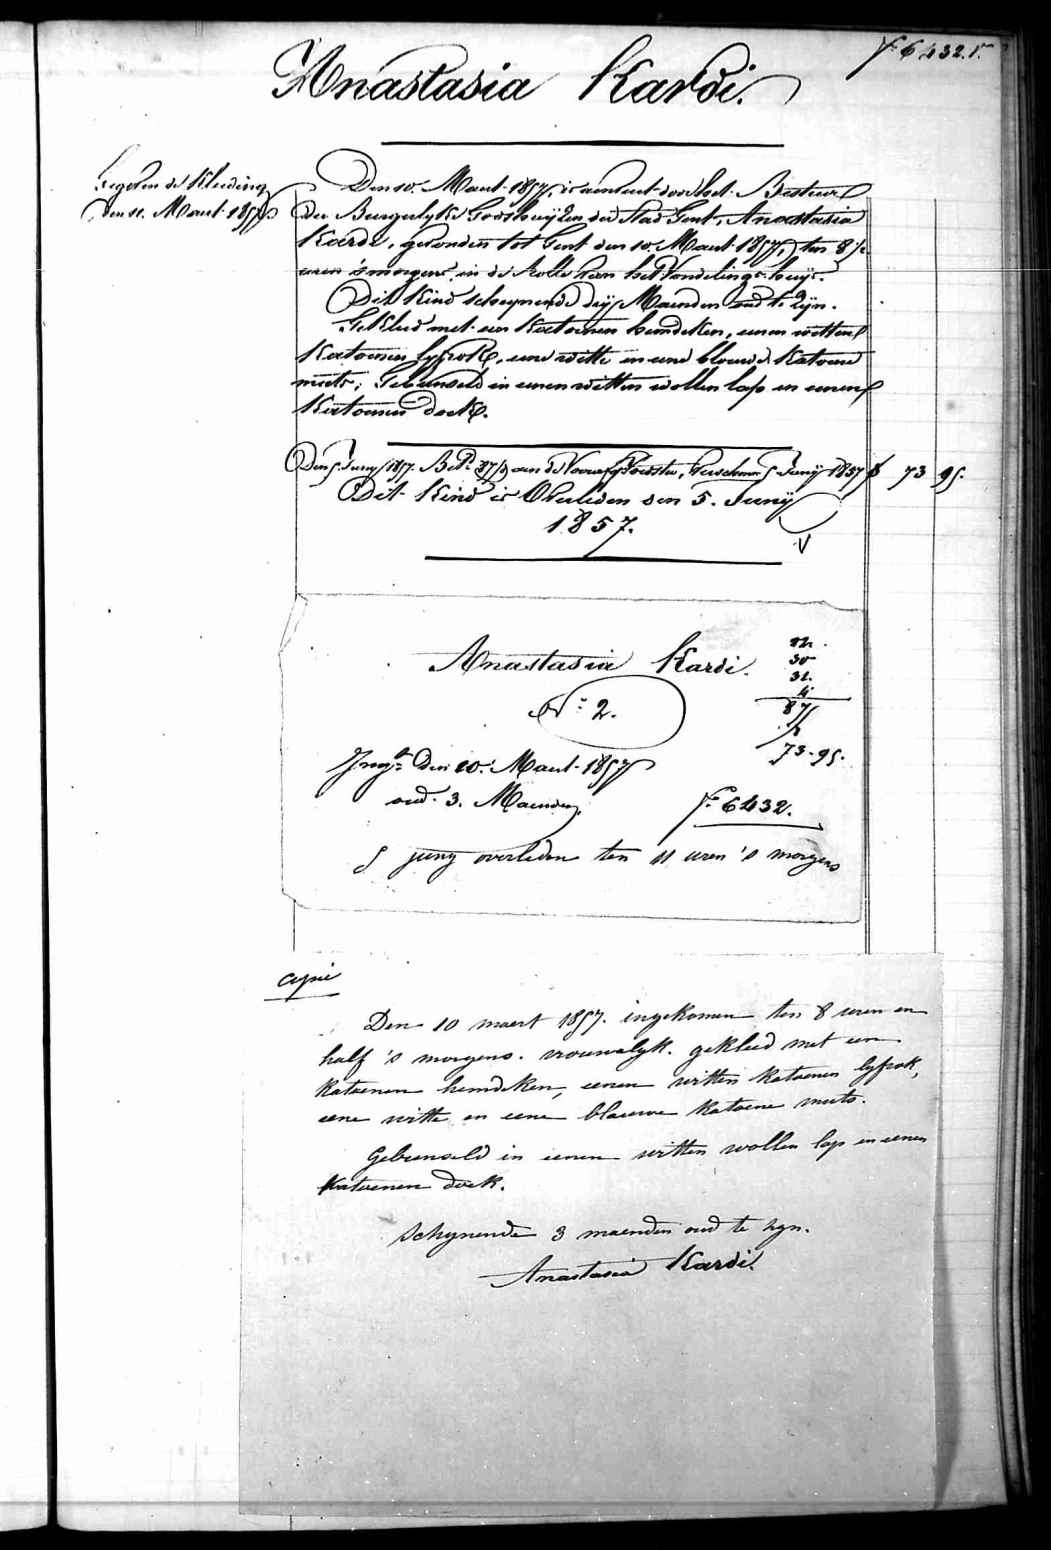 Fo 6432. Vo
Anastasia Kardi.
Gegeven de Kleeding
den 11. Maart 1857
Den 10. Maart 1857, is aenveert door het Bestuer
der Burgerlyke Godshuyzen der Stad Gent, Anastasia
Kardi, gevonden tot Gent den 10. Maart 1857, ten 8 1/2
uren 's morgens in de Rolle van het Vondelings-huys.
Dit Kind schynende dry Maenden oud te zyn.
Gekleed met een Katoenen hemdeken, eenen witten
Katoenen lyfrok, eene witte en eene blauwe Katoene
muts; Gebunseld in eenen witten wollen lap en eenen
Katoenen doek.
Den 5 Juny 1857. Bet. 87 aen de Voorsz. Voedster, 5 Juny 1857 f 73 95.
Dit Kind is Overleden den 5. Juny
1857.
V
Anastasia Kardi.
No 2.
22.
30
31.
4
87
73-95.
Den 10. Maart 1857
oud 3. Maenden
Fo 6432.
5 juny overleden ten 11 uren 's morgens
copie
Den 10 maert 1857. ingekomen ten 8 uren en
half 's morgens. vrouwelyk. gekleed met een
katoenen hemdeken, eenen witten katoenen lyfrok,
eene witte en eene blauwe katoene muts.
Gebunseld in eenen witten wollen lap en eenen
katoenen doek.
Schynende 3 maenden oud te zyn.
Anastasia Kardi.